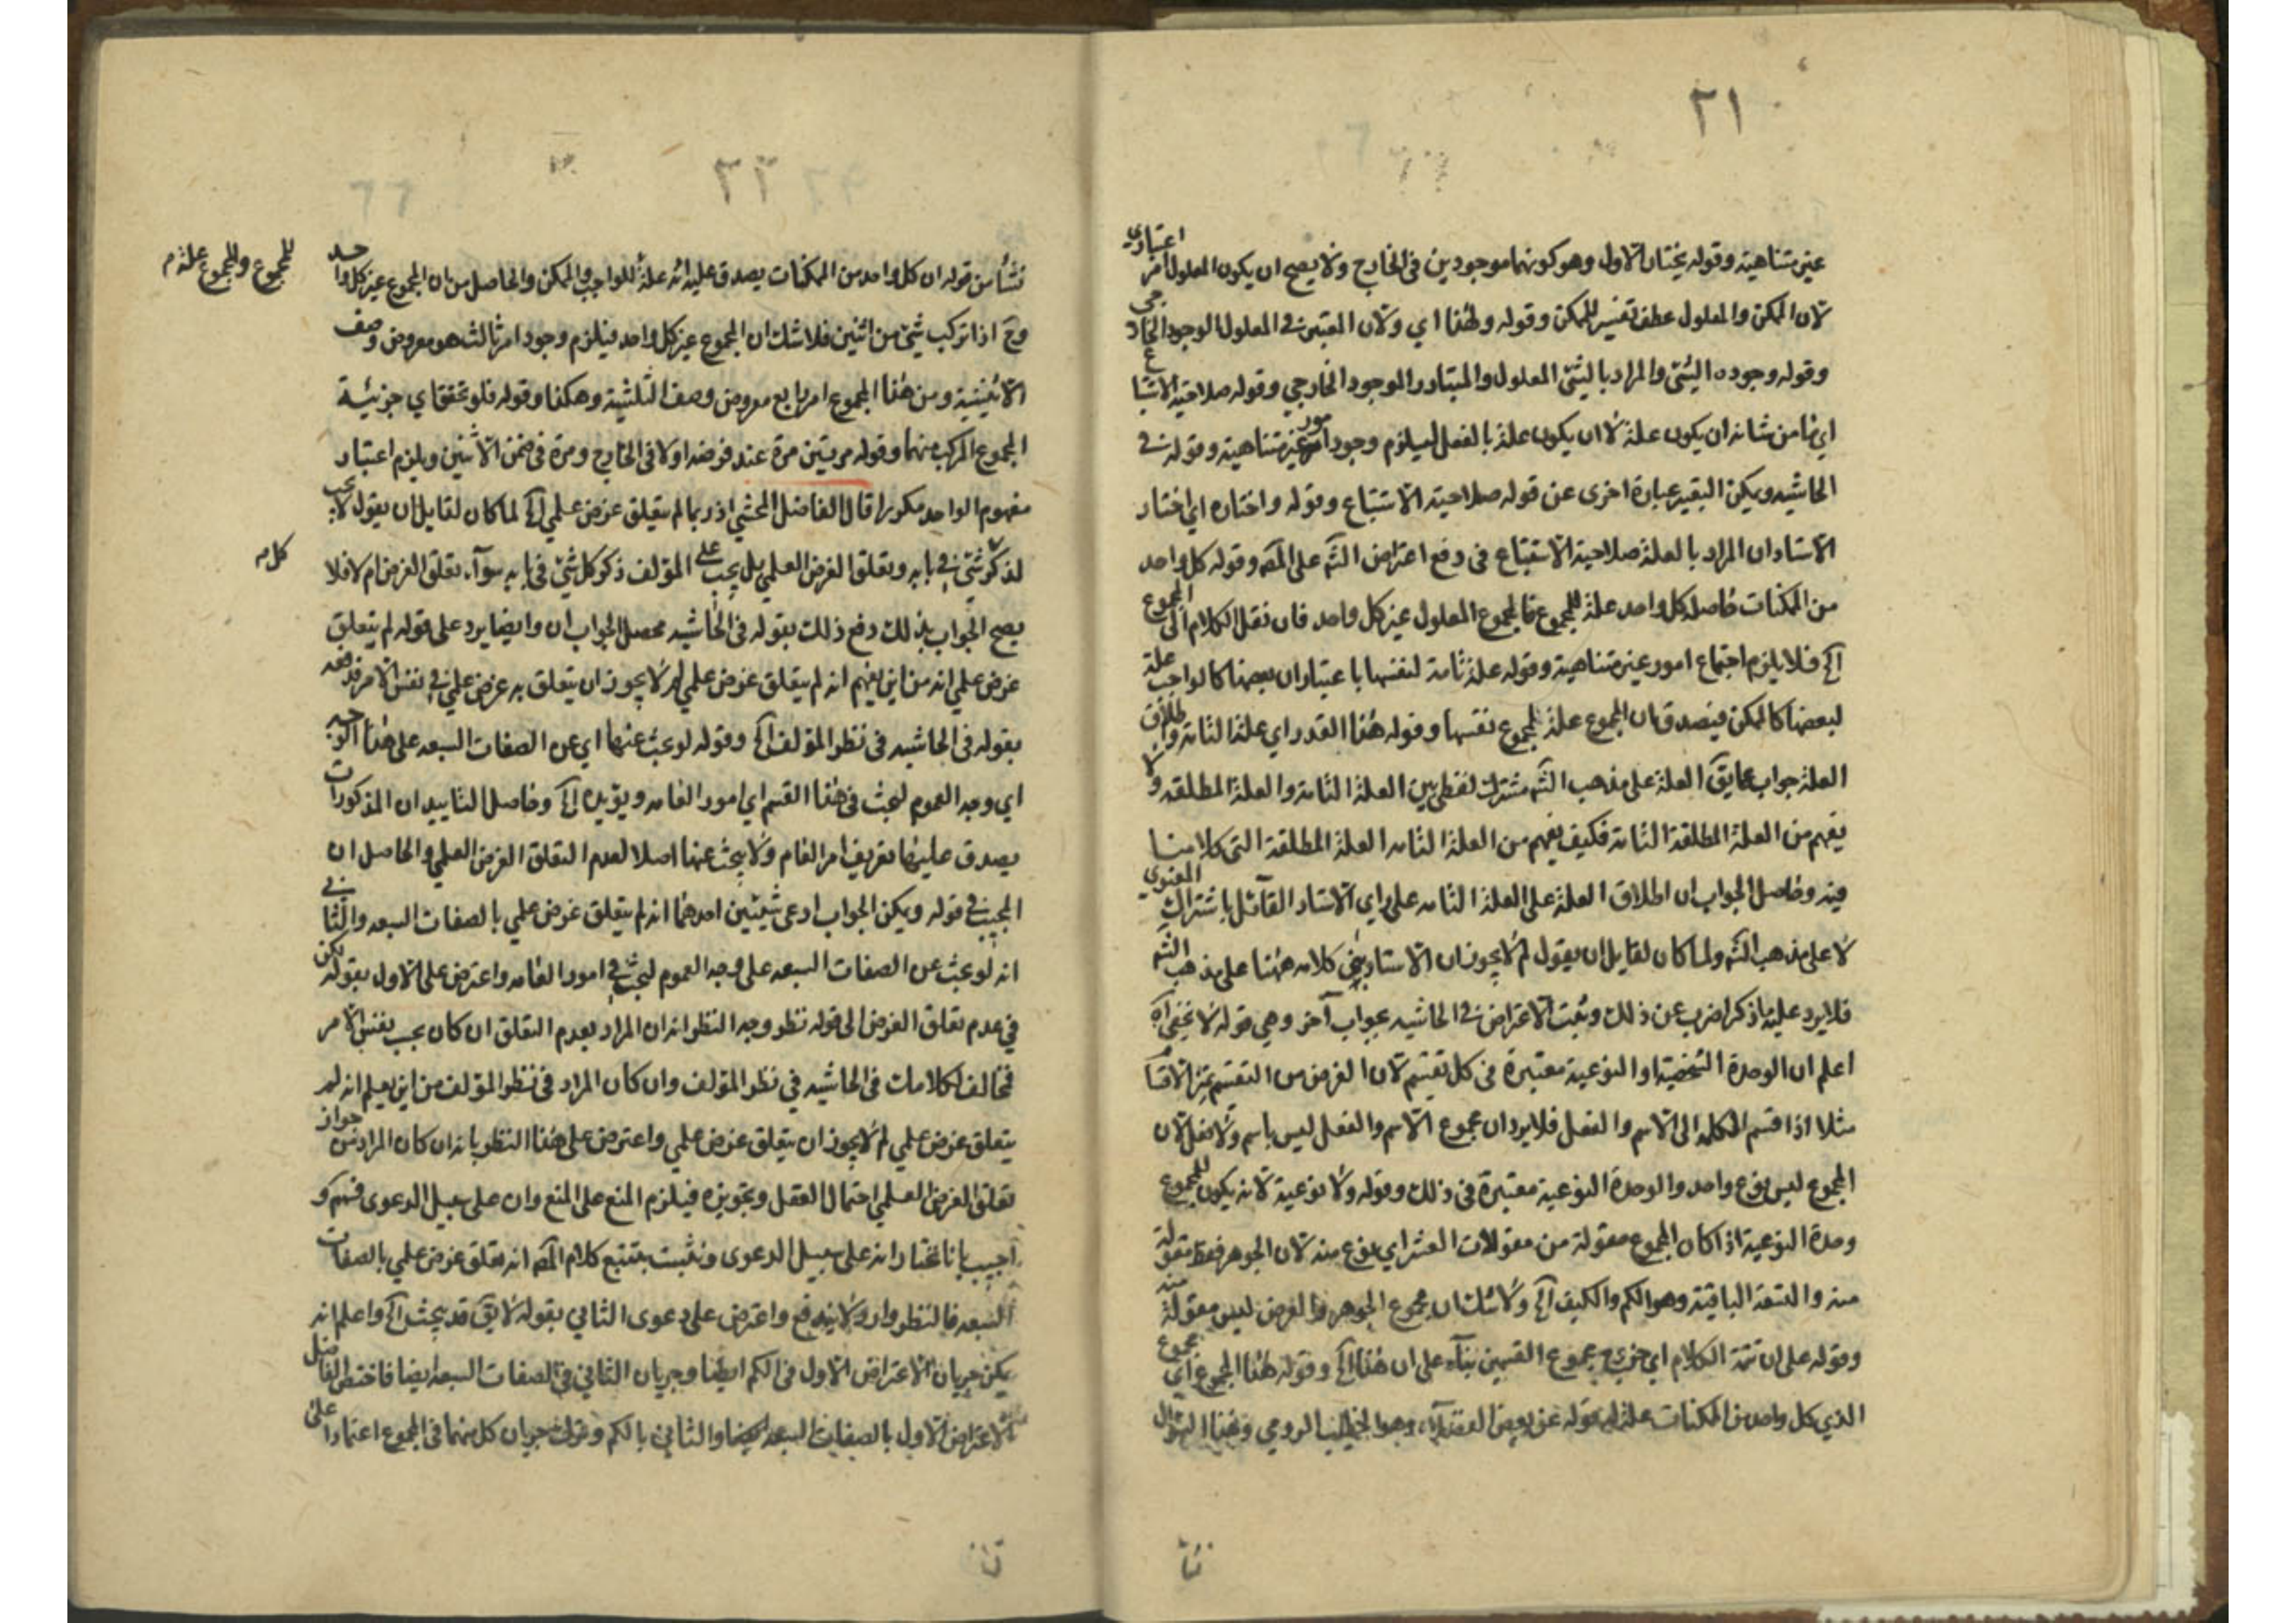 ٢١
غير متناهية وقوله يختار الاول وهو كونهما موجودين فى الخارج ولا يصح ان يكون المعلول امر اعتبارى
لان الممكن والمعلول عطف تفسير للممكن وقوله ولهذا اي ولان المعتبر فى المعلول الوجود الخارجى
وقوله وجوده الشئ والمراد بالشئ المعلول والمتبادر الموجود الخارجي وقوله صلاحية الاستتباع
اي ما من شانه ان يكون علة لا ان يكون علة بالفعل ليلزم وجود امور غير متناهية وقوله فى
الحاشيه ويمكن التعبير عبارة اخرى عن قوله صلاحية الاستتباع وقوله واختاره اي اختار
الاستاد ان المراد بالعلة صلاحية الاستتباع فى دفع اعتراض الشم على المص وقوله كل واحد
من الممكنات حاصله كل واحد علة للمجموع فالمجموع المعلول غير كل واحد فان نقل الكلام الى المجموع
آه فلا يلزم اجتماع امور غير متناهية وقوله علة تامة لنفسها باعتبار ان بعضها كالواجب علة
لبعضها كالممكن فيصدق ان المجموع علة لمجموع نفسها وقوله هذا القدر اي علة التامة واطلاق
العلة جواب عما يق العلة على مذهب الشم مشترك لفظي بين العلة التامة والعلة المطلقه ولا
يفهم من العلة المطلقة التامة فكيف يفهم من العلة التامه العلة المطلقة التى كلامنا
فيه وحاصل الجواب ان اطلاق العلة على العلة التامه على راي الاستاد القائل باشتراك المعنوي
لا على مذهب الشم ولما كان لقايل ان يقول لم لا يجوز ان الاستاد يبنى كلامه ههنا على مذهب الشم
فلا يرد عليه ما ذكر اضرب عن ذلك ويثبت الاعتراض فى الحاشيه بجواب آخر وهي قوله لا يخفى آه
اعلم ان الوحدة الشخصية او النوعية معتبرة فى كل تقسيم لان الغرض من التقسيم تميز الاقسا
مثلا اذا قسم الكلمه الى الاسم والفعل فلا يرد ان مجموع الاسم والفعل ليس باسم ولا فعل لان
المجموع ليس نوع واحد والوحدة النوعية معتبرة فى ذلك وقوله ولا نوعية لانه يكون للمجموع
وحدة النوعية اذا كان المجموع مقولة من مقولات العشر اي نوع منه لان الجوهر فقط مقولة
منه والتسعة الباقية وهو الكم والكيف آه ولا شك ان مجموع الجوهر والعرض ليس مقولة منه
وقوله على ان تتمة الكلام اي جزء مجموع القسمين بناء على ان هذا آه وقوله هذا المجموع اي مجموع
الذي كل واحد من الممكنات علة له قوله عن بعض الفضلاء وهو الرومي وهذا السؤال
نشا
٢٢
نشأ من قوله ان كل واحد من الممكنات يصدق عليه انه علة للواجب والممكن والحاصل من ان المجموع غير كل واحد
للمجموع والمجموع علة م
وح اذا تركب شئ من اثنين فلا شك ان المجموع غير كل واحد فيلزم وجود امر ثالث هو معروض وصف
الاثنينية ومن هذا المجموع امر رابع معروض وصف الثلثية وهكذا وقوله فلو تحقق اي جزئية
المجموع المركب منهما وقوله مرتين مرة عند فرضه اولا فى الخارج ومرة فى ضمن الاثنين ويلزم اعتبار
مفهوم الواحد مكررا قال الفاضل المحشي اذ ربما لم يتعلق غرض علمي آه لما كان لقايل ان يقول لا يجب
لذكر شئ فى بابه وتعلق الغرض العلمي بل يجب على المؤلف ذكر كل شئ فى بابه سوآء تعلق الغرض ام لا فلا
كل مه
يصح الجواب بذلك دفع ذلك بقوله فى الحاشيه محصل الجواب ان وايضا يرد على قوله لم يتعلق
غرض علمي انه من اين يفهم انه لم يتعلق غرض علمي لم لا يجوز ان يتعلق به غرض علمي فى نفس الامر فدفعه
بقوله فى الحاشيه فى نظر المؤلف آه وقوله لو بحث عنها اي عن الصفات السبعه على هذا الوجه
اي وجه العموم لبحث فى هذا القسم اي امور العامه ويؤيده آه وحاصل التاييد ان المذكورات
يصدق عليها تعريف امر العام ولا يبحث عنها اصلا لعدم التعلق الغرض العلمي والحاصل ان
المجيب فى قوله ويمكن الجواب ادعى شيئين احدهما انه لم يتعلق غرض علمي بالصفات السبعه والثانى
انه لو بحث عن الصفات السبعه على وجه العموم لبحث فى امور العامه واعترض على الاول بقوله لكن
في عدم تعلق الغرض الى قوله نظر وجه النظر انه ان المراد بعدم التعلق ان كان بحسب نفس الامر
فخالف لكلامات فى الحاشيه في نظر المؤلف وان كان المراد فى نظر المؤلف من اين يعلم انه لم
يتعلق غرض علمي لم لا يجوز ان يتعلق غرض علمي واعترض على هذا النظر بانه ان كان المراد من جواز
تعلق الغرض العلمي احتمال العقل وتجويزه فيلزم المنع على المنع وان على سبيل الدعوى فهم و
اجيب بانا نختار انه على سبيل الدعوى ونثبت بتتبع كلام المص انه تعلق غرض علمي بالصفات
السبعه فالنظر وارد ولا يندفع واعترض على دعوى الثاني بقوله لا يق قد يبحث آه واعلم انه
يمكن جريان الاعتراض الاول فى الكم ايضا وجريان الثاني فى الصفات السبعه ايضا فاختص الفاضل
الاعتراض الاول بالصفات السبعه والثاني بالكم وترك جريان كل منهما فى المجموع اعتمادا على